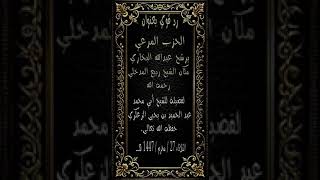 رد قوي بعنوان
الحزب المدعي
يرشح عبدالله البخاري
مكان الشيخ ربيع المدخلي
رحمه الله
لفضيلة الشيخ أبي محمد
عبد الحميد بن يحيى الزعكري
حفظه الله تعالى
الثلاثاء 27 / محرم / 1447 هـ